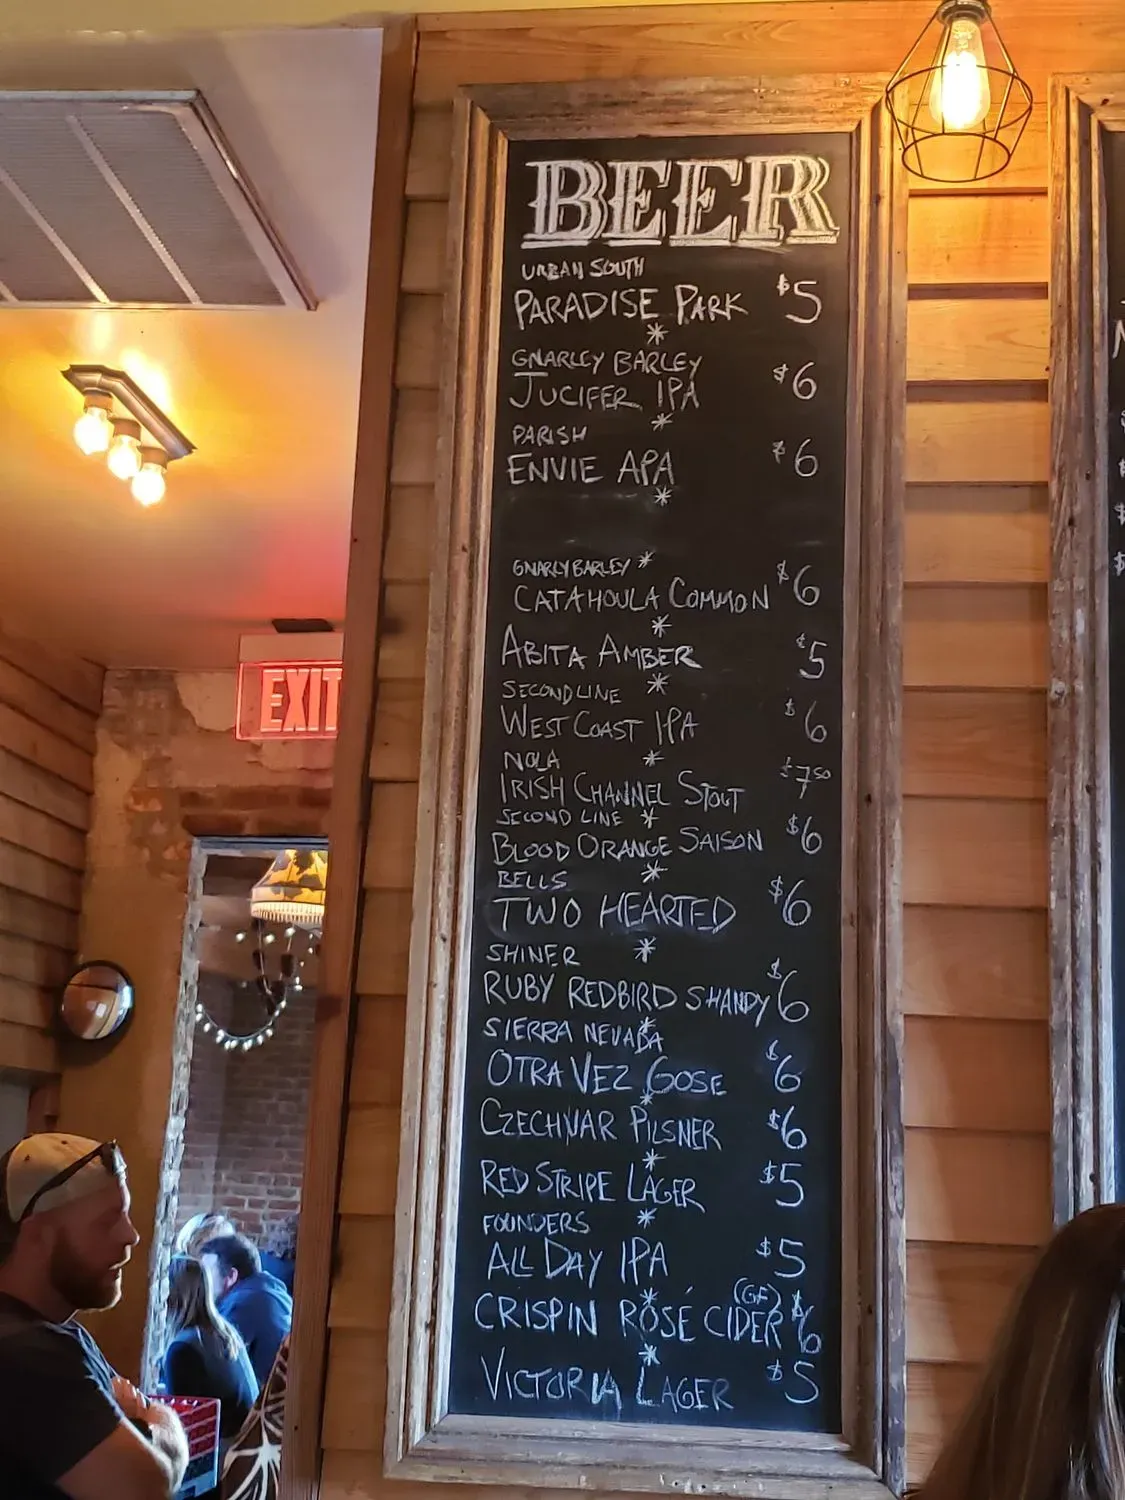 BEER
URBAN SOUTH
PARADISE PARK $5
GNARLEY BARLEY
JUCIFER IPA $6
PARISH
ENVIE APA $6
GNARLY BARLEY
CATAHOULA COMMON $6
ABITA AMBER $5
SECOND LINE
WEST COAST IPA $6
NOLA
IRISH CHANNEL STOUT $7.50
SECOND LINE
BLOOD ORANGE SAISON $6
BELLS
TWO HEARTED $6
SHINER
RUBY REDBIRD SHANDY $6
SIERRA NEVADA
OTRA VEZ GOSE $6
CZECHVAR PILSNER $6
RED STRIPE LAGER $5
FOUNDERS
ALL DAY IPA $5
(GF)
CRISPIN ROSÉ CIDER $6
VICTORIA LAGER $5
EXIT